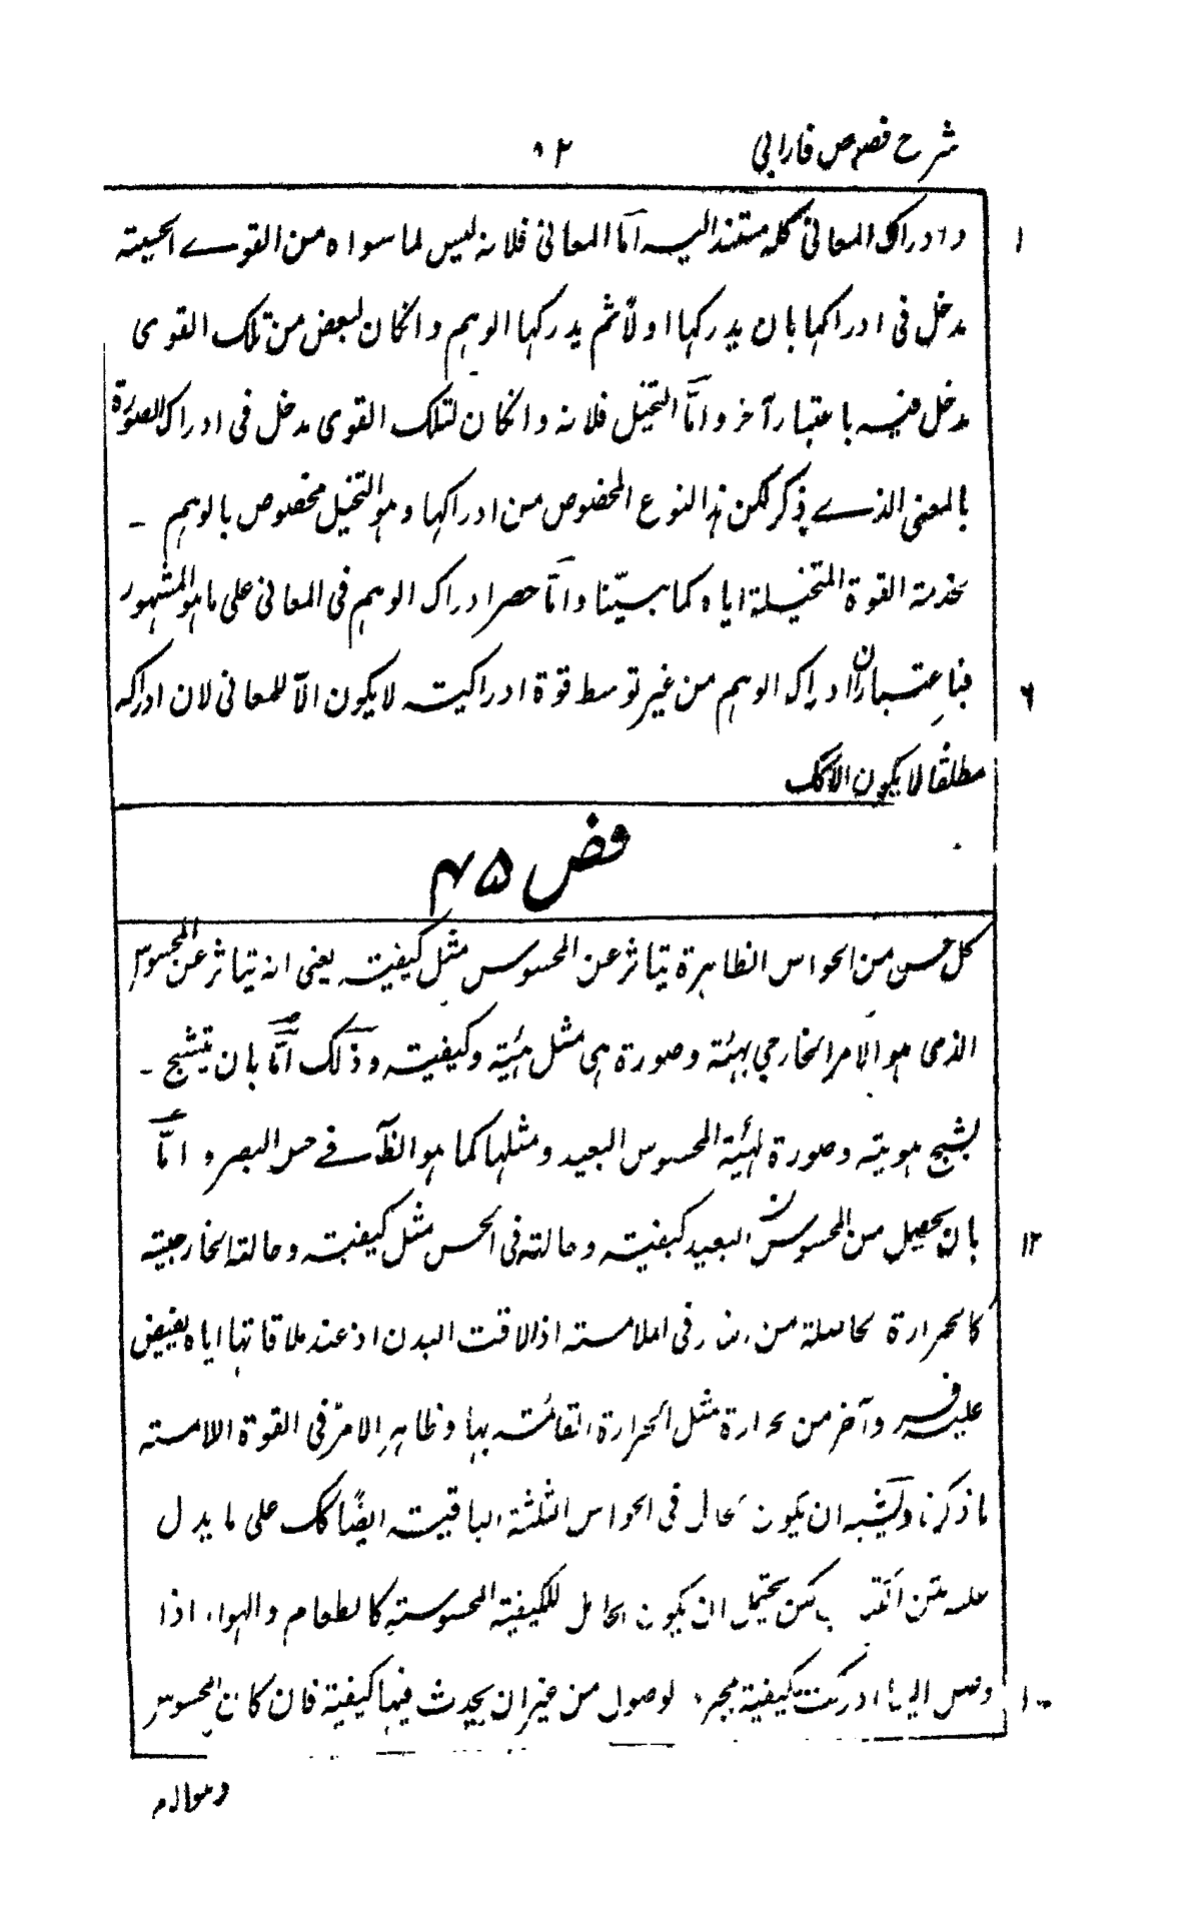 شرح فصوص فارابی ۸۲
۱ وادراک المعانی کله مستند الیه اما المعانی فلانه لیس لما سواه من القوے الحسیته
مدخل فی ادراکها بان یدرکها اولاً ثم یدرکها الوہم وانکان لبعض من تلک القوی
مدخل فیه باعتبار آخر وامّا التخیل فلانه وانکان لتلک القوی مدخل فی ادراک الصورة
بالمعنی الذے ذکر لکن ہذا النوع المخصوص من ادراکها وہو التخیل مخصوص بالوہم -
بخدمة القوة المتخیلة ایاه کما بیّنا وامّا حصر ادراک الوہم فی المعانی علی ما ہو المشہور
۶ فباعتبار ان ادراک الوہم من غیر توسط قوة ادراکیته لا یکون الّا للمعانی لان ادراکه
مطلقًا لا یکون الا کک
فص ۴۵
کل حس من الحواس الظاہرة یتاثر عن المحسوس مثل کیفیته یعنی انه یتاثر عن المحسوس
الذی ہو الامر الخارجی بہیئة وصورة ہی مثل ہیئته وکیفیته وذلک امّا بان یتشبح -
بشبح ہویته وصورة لہیئة المحسوس البعید ومثلها کما ہو الظاَ فے حس البصر و امّا
۱۲ بان یحصل من المحسوس البعید کیفیته وحالته فی الحس مثل کیفیته وحالته الخارجیته
کالحرارة الحاصلة من النار فی الملامسته اذ الاقت البدن اذ عند ملاقاتها ایاه یفیض
علیه فرد آخر من حرارة مثل الحرارة القائمته بها وظاہر الامر فی القوة اللامسته
ما ذکرنا ویشبه ان یکون الحال فی الحواس الثلثة الباقیته ایضًا کک علی ما یدل
علیه متن الکتاب لکن یحتمل ان یکون الحامل للکیفیة المحسوسته کالطعام والهواء اذا
وصل الیها ادرکت کیفیة بمجرد الوصول من غیر ان یحدث فیها کیفیة فان کان المحسوس